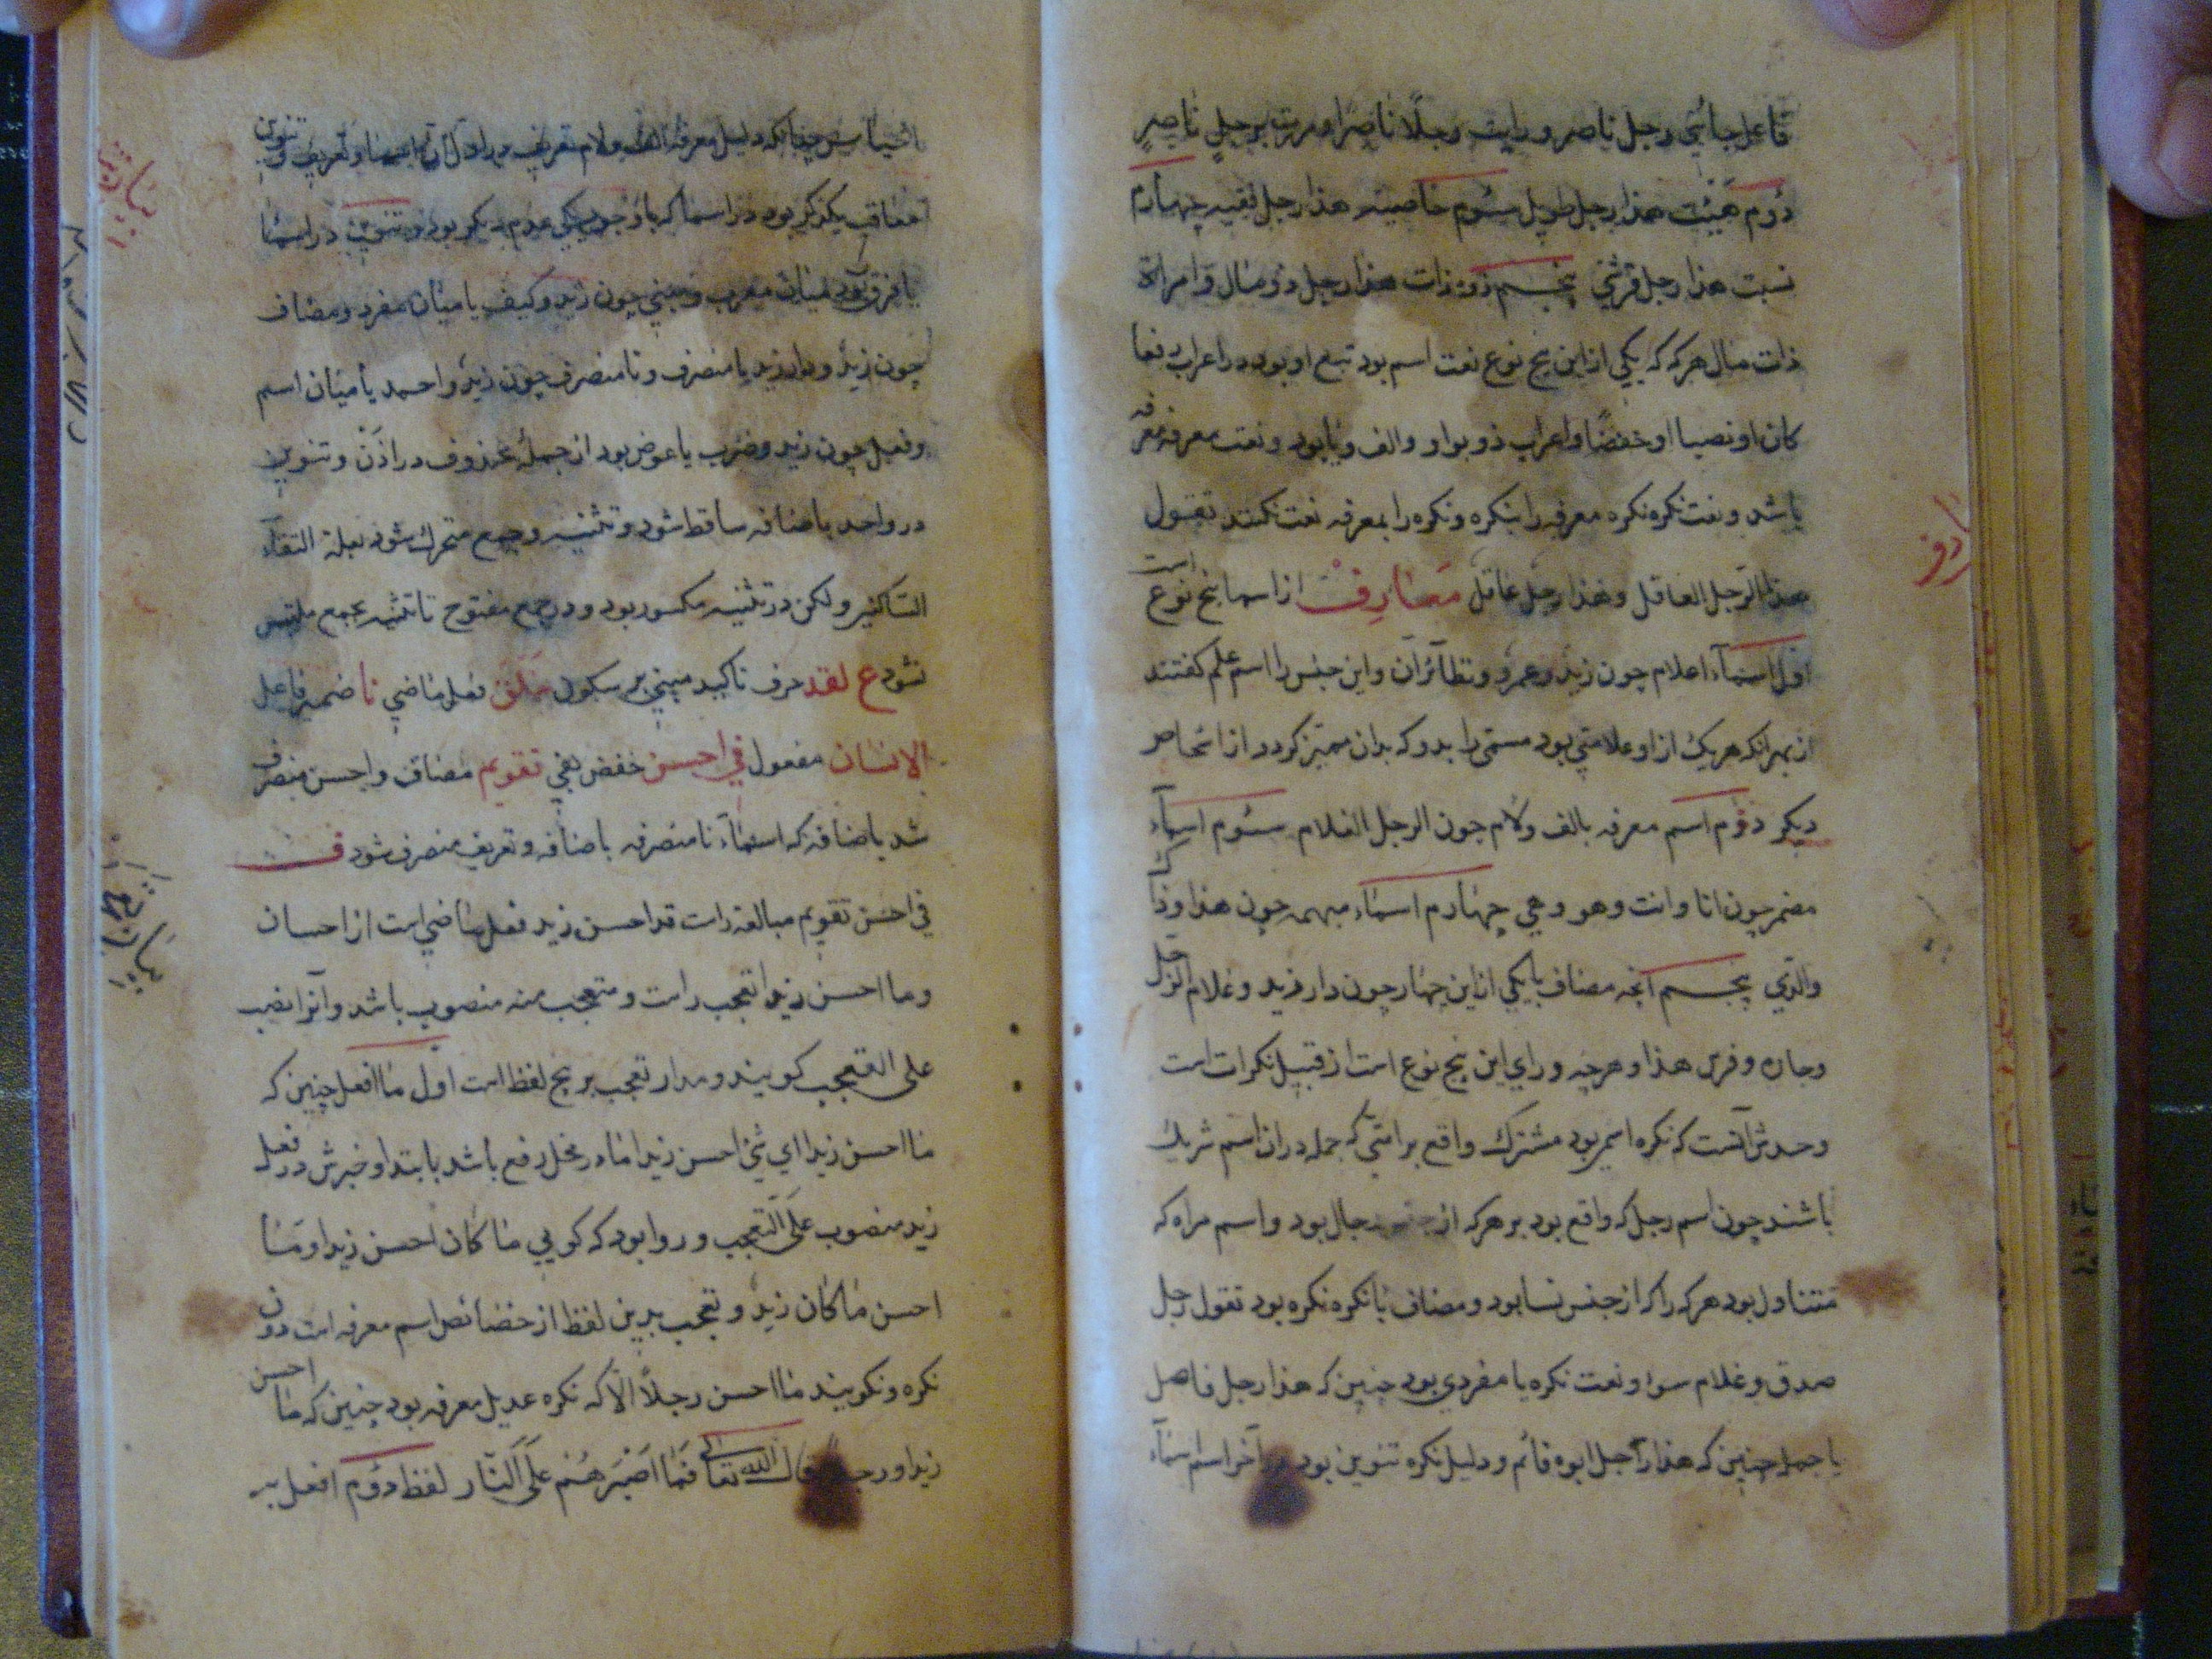 فاعل جائني رجل ناصر ورايت رجلًا ناصرًا ومررت برجلٍ ناصرٍ
دوم هيئت هذا رجل طويل سوم خاصيته هذا رجل فقيه چهارم
نسبت هذا رجل قرشي پنجم ذو وذات هذا رجل ذو مال وامراة
ذات مال هركه كه يكي ازاين پنج نوع نعت اسم بود تبع او بود در اعراب رفعا
كان او نصبا او خفضًا واعراب ذو بواو والف ويا بود ونعت معرفه معرفه
باشد ونعت نكره نكره معرفه را بنكره ونكره را بمعرفه نعت نكنند تقول
هذا الرجل العاقل وهذا رجل عاقل معارف از اسما پنج نوع است
اول اسمآء اعلام چون زيد وعمرو ونظآئران واين جنس را اسم علم كفتند
از بهر انكه هريك ازاو علامتي بود مسمى را بدو كه بدان مميز كردد از اشخاص
ديكر دوم اسم معرفه بالف ولام چون الرجل الغلام سوم اسمآء
مضمر چون انا وانت وهو وهي چهارم اسماء مبهمه چون هذا وذاك
والذي پنجم انچه مضاف با يكي ازاين چهار چون دار زيد وغلام الرجل
وجاره وفرس هذا وهرچه وراي اين پنج نوع است از قبيل نكرات است
وحدش آنست كه نكره اسمي بود مشترك واقع بر امتي كه جمله دران اسم شريك
باشند چون اسم رجل كه واقع بود بر هركه از جنس رجال بود واسم مراه كه
متناول بود هركه را كه از جنس نسا بود ومضاف با نكره نكره بود تقول رجل
صدق وغلام سوء ونعت نكره يا مفردي بود چنين كه هذا رجل فاضل
يا جمله چنين كه هذا رجل ابوه قائم ودليل نكره تنوين بود در آخر اسم اسمآء
چنانكه دليل معرفه الف ولام تعريف تنوين
معاقب يكديكر بود در اسما كه با وجود يكي عدم ديكر بود وتنوين در اسما
يا فرق بود ميان معرب ومبني چون زيد وكيف يا ميان مفرد ومضاف
چون زيد ودار زيد يا منصرف ونا منصرف چون زيد واحمد يا ميان اسم
وفعل چون زيد وضرب يا عوض بود از جملهٔ محذوف در اذن وتنوين
در واحد باضافه ساقط شود وتثنيه وجمع متحرك شود بعلة التقآء
الساكنين ولكن در تثنيه مكسور بود ودر جمع مفتوح تا تثنيه بجمع ملتبس
نشود ع لقد حرف تاكيد مبني بر سكون خلق فعل ماضي نا ضمير فاعل
الانسان مفعول في احسن خفض بفي تقويم مضاف واحسن منصرف
شد باضافه كه اسمآء نا منصرفه باضافه وتعريف منصرف شود ف
في احسن تقويم مبالغه راست قد احسن زيد فعل ماضي است از احسان
وما احسن زيدا تعجب راست ومتعجب منه منصوب باشد وآنرا نصب
على التعجب كويند ومدار تعجب بر پنج لفظ است اول ما افعل چنين كه
ما احسن زيدا اي شئ احسن زيدا ما در محل رفع باشد بابتدا وخبرش در فعل
زيد منصوب على التعجب وروا بود كه كويي ما كان احسن زيدا وما
احسن ما كان زيد وتعجب بدين لفظ از خصائص اسم معرفه است دون
نكره ونكويند ما احسن رجلًا الا كه نكره عديل معرفه بود چنين كه ما احسن
زيدا ورجلا قال الله تعالى فَمَا اَصْبَرَهُمْ عَلَى النَّارِ لفظ دوم افعل به